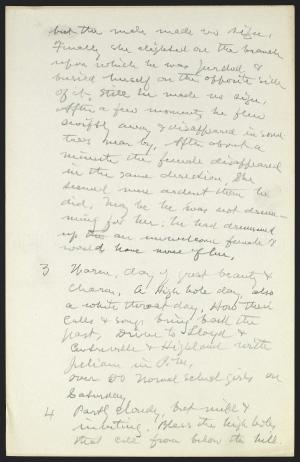 but the male made no sign.
Finally she alighted on the branch
upon which he was perched, &
buried herself on the opposite side
of it, still he made no sign.
After a few moments he flew
swiftly away & disappeared in some
trees near by. After about a
minute the female disappeared
in the same direction. She
seemed more ardent than he
did. May be he was not drum-
ming for her; he had drummed
up an unwelcome female &
would have none of her.
3 Warm, day of great beauty &
charm. A high hole day, also
a white throat day. How their
calls & songs bring back the
past. Drive to Lloyd &
Centreville & Highland with
Julian in P.M.
over 20 Normal School girls on
Saturday
4 Partly cloudy, but mild &
inviting. Bless the high holes
that call from below the hill.